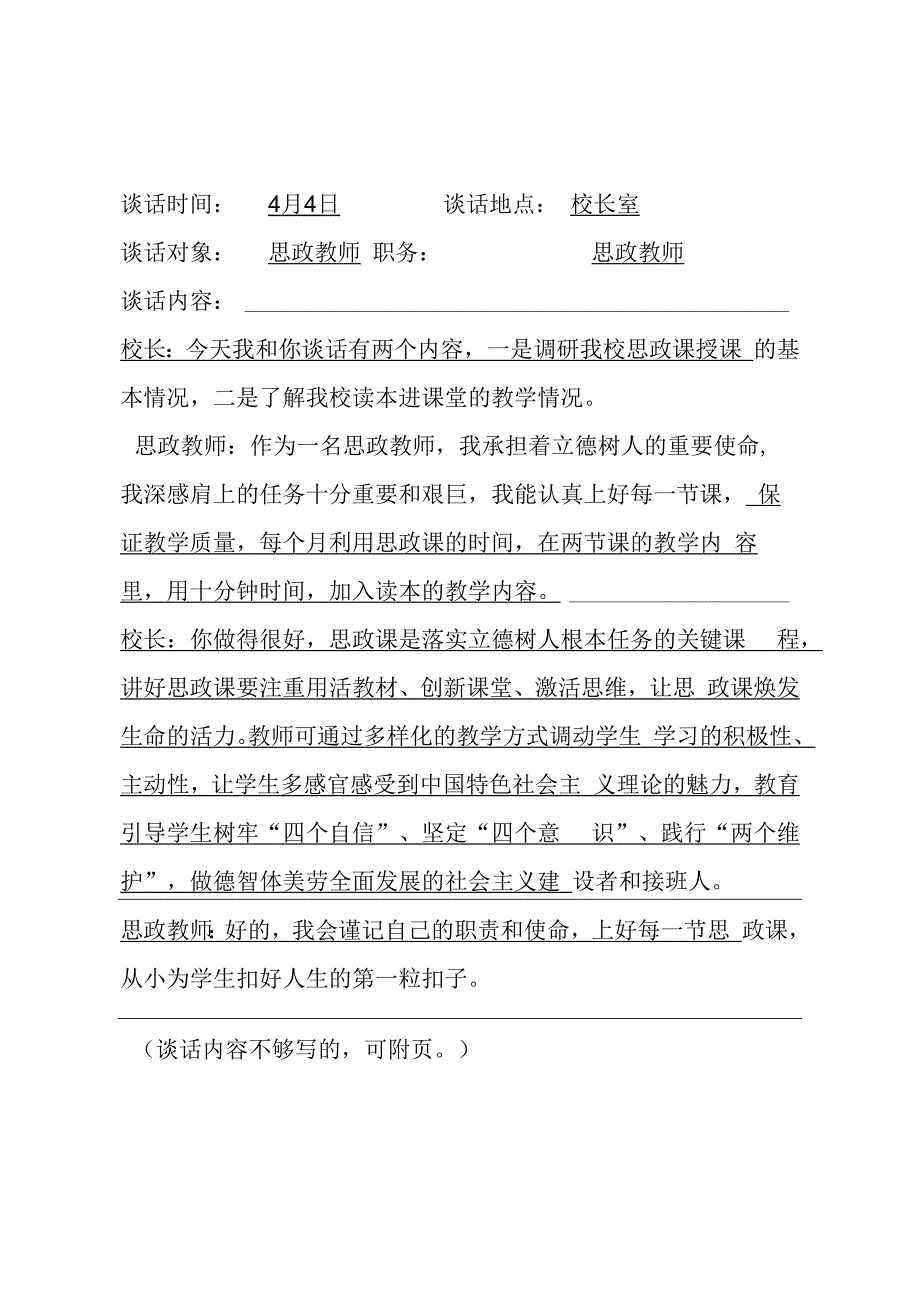 谈话时间： 4月4日 谈话地点： 校长室
谈话对象： 思政教师 职务： 思政教师
谈话内容：
校长：今天我和你谈话有两个内容，一是调研我校思政课授课 的基
本情况，二是了解我校读本进课堂的教学情况。
思政教师：作为一名思政教师，我承担着立德树人的重要使命,
我深感肩上的任务十分重要和艰巨，我能认真上好每一节课， 保
证教学质量，每个月利用思政课的时间，在两节课的教学内 容
里，用十分钟时间，加入读本的教学内容。
校长：你做得很好，思政课是落实立德树人根本任务的关键课 程，
讲好思政课要注重用活教材、创新课堂、激活思维，让思 政课焕发
生命的活力。教师可通过多样化的教学方式调动学生 学习的积极性、
主动性，让学生多感官感受到中国特色社会主 义理论的魅力，教育
引导学生树牢“四个自信”、坚定“四个意 识”、践行“两个维
护”，做德智体美劳全面发展的社会主义建 设者和接班人。
思政教师：好的，我会谨记自己的职责和使命，上好每一节思 政课，
从小为学生扣好人生的第一粒扣子。
（谈话内容不够写的，可附页。）